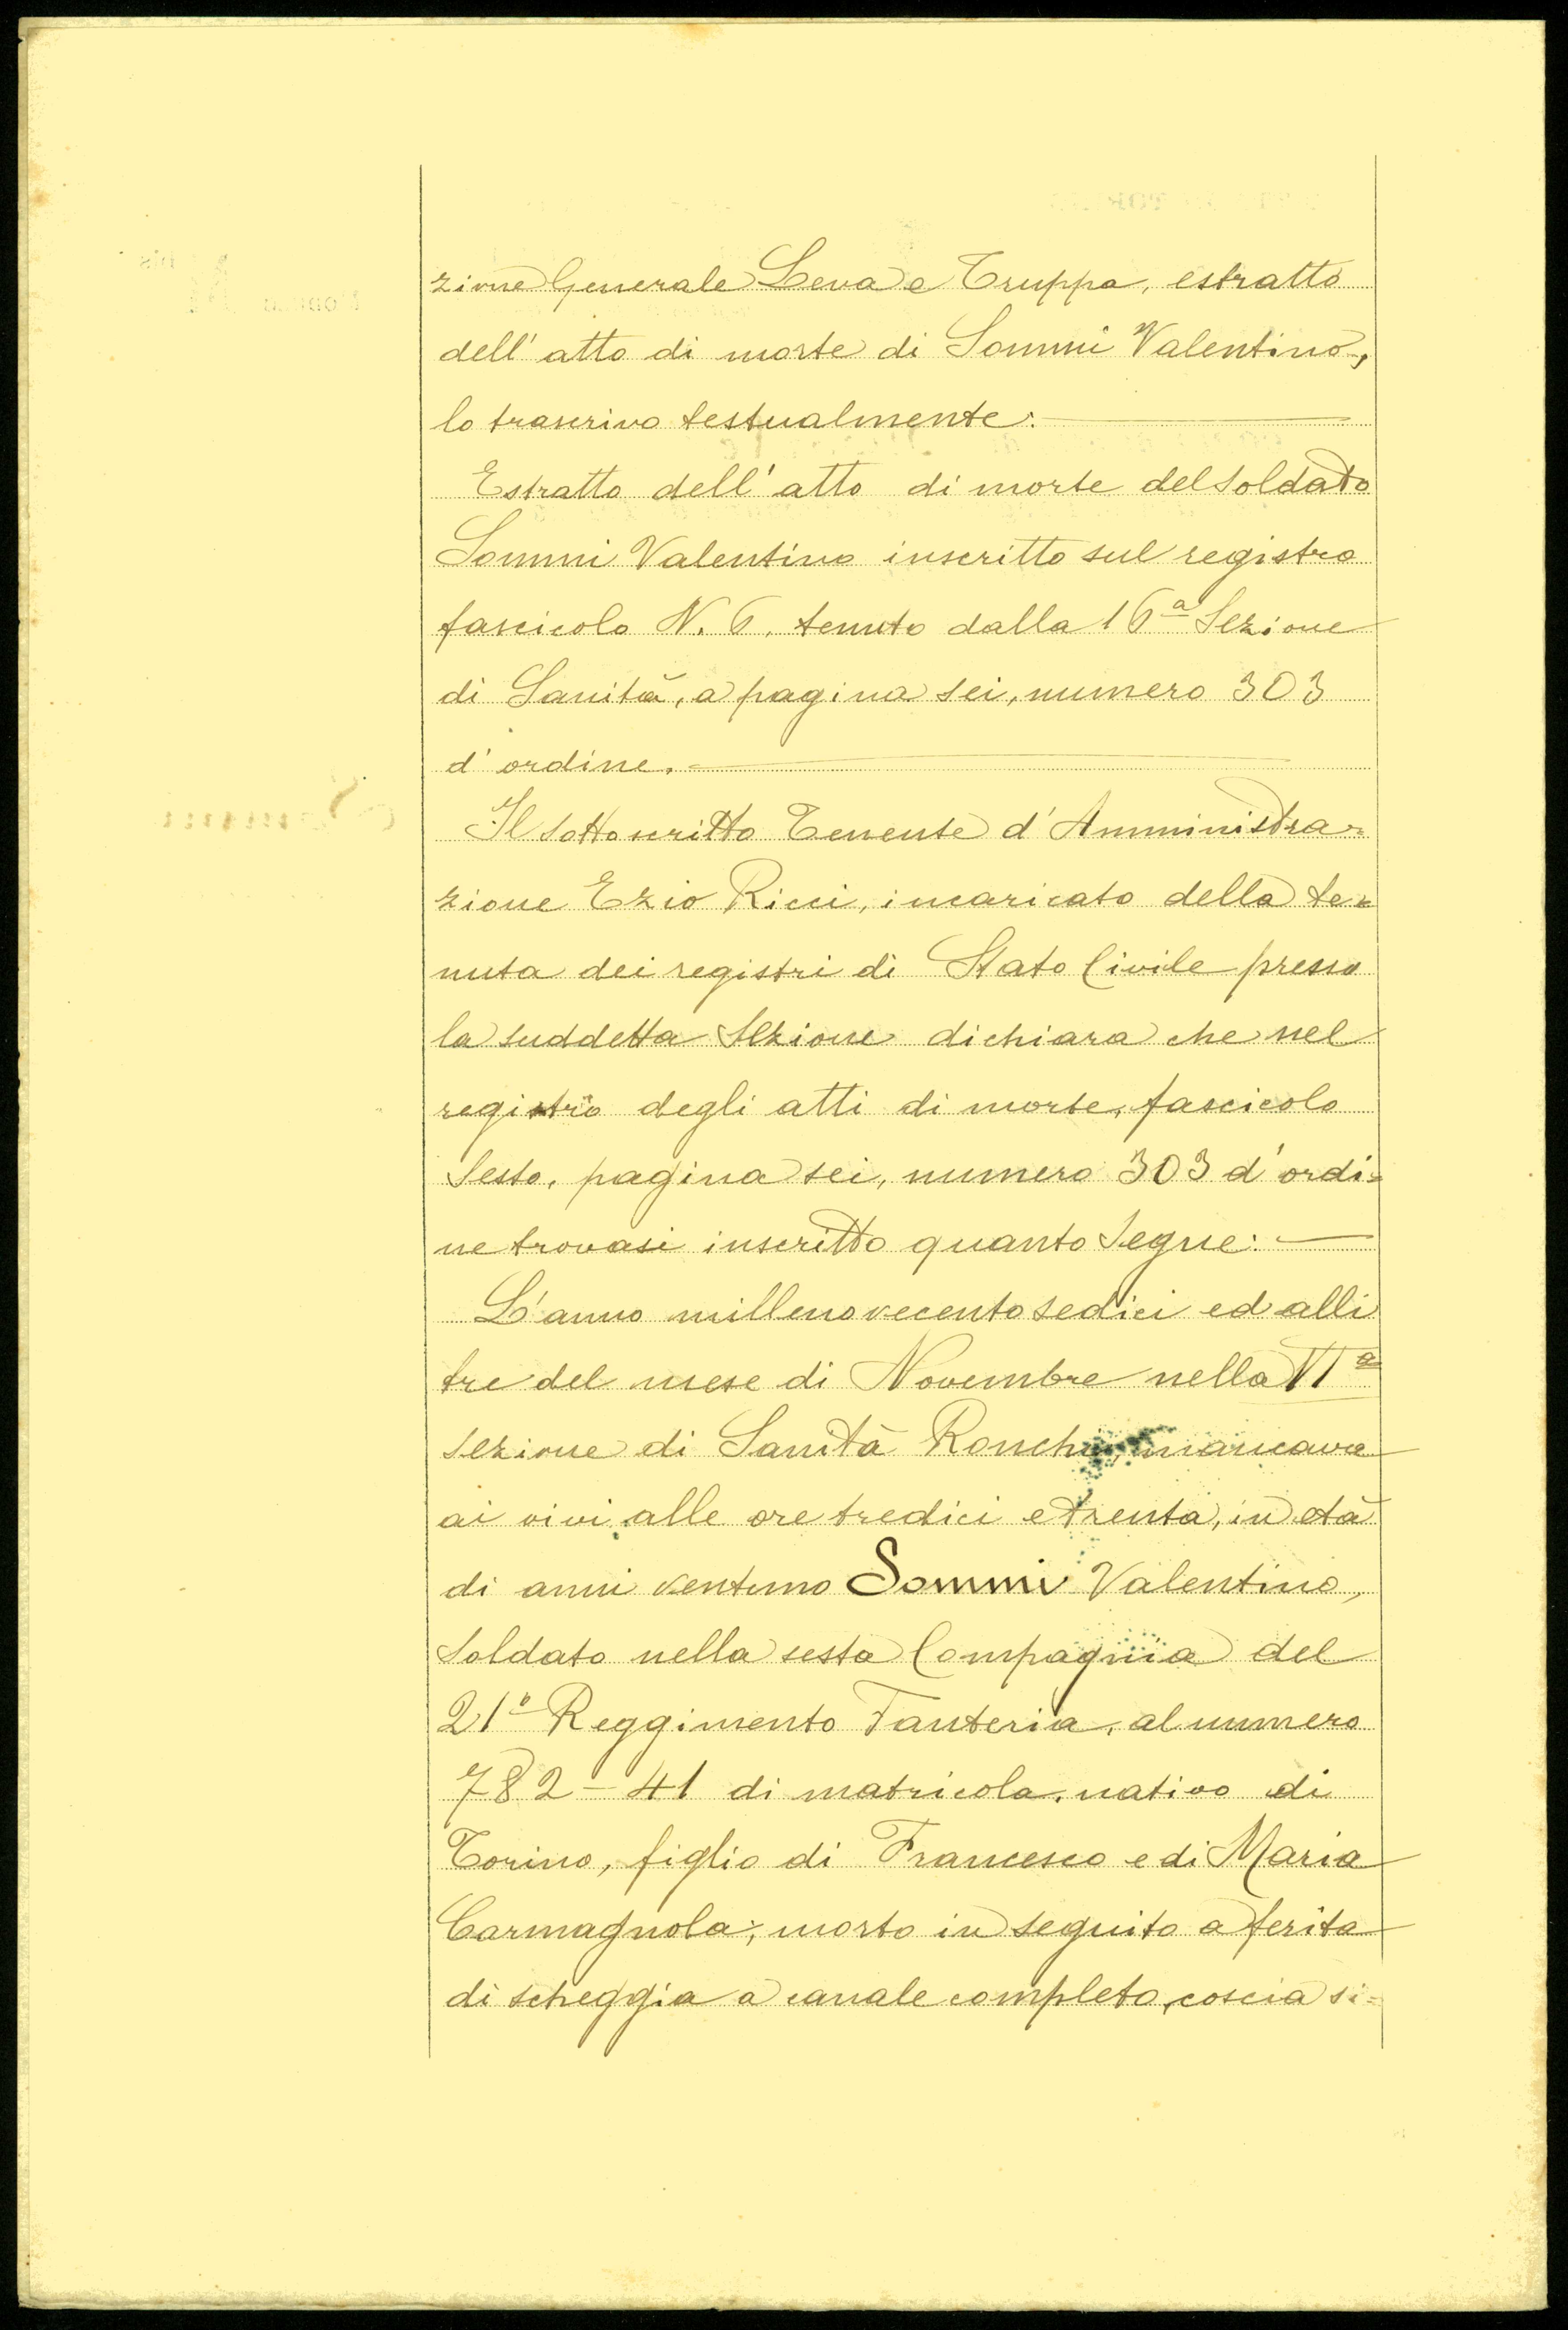 zione Generale Leva e Truppa, estratto
dell'atto di morte di Sommi Valentino,
lo trascrivo testualmente:
Estratto dell'atto di morte del soldato
Sommi Valentino inscritto sul registro
fascicolo N. 6, tenuto dalla 16ª Sezione
di Sanità, a pagina sei, numero 303
d'ordine.
Il sottoscritto Tenente d'Amministra-
zione Ezio Ricci, incaricato della te-
nuta dei registri di Stato Civile presso
la suddetta Sezione dichiara che nel
registro degli atti di morte, fascicolo
Sesto, pagina sei, numero 303 d'ordi=
ne trovasi inscritto quanto segue:
L'anno millenovecentosedici ed alli
tre del mese di Novembre nella VIª
sezione di Sanità Ronchi, mancava
ai vivi alle ore tredici e trenta, in età
di anni ventuno Sommi Valentino,
soldato nella sesta Compagnia del
21º Reggimento Fanteria, al numero
782-41 di matricola, nativo di
Torino, figlio di Francesco e di Maria
Carmagnola; morto in seguito a ferita
di scheggia a canale completo, coscia si=